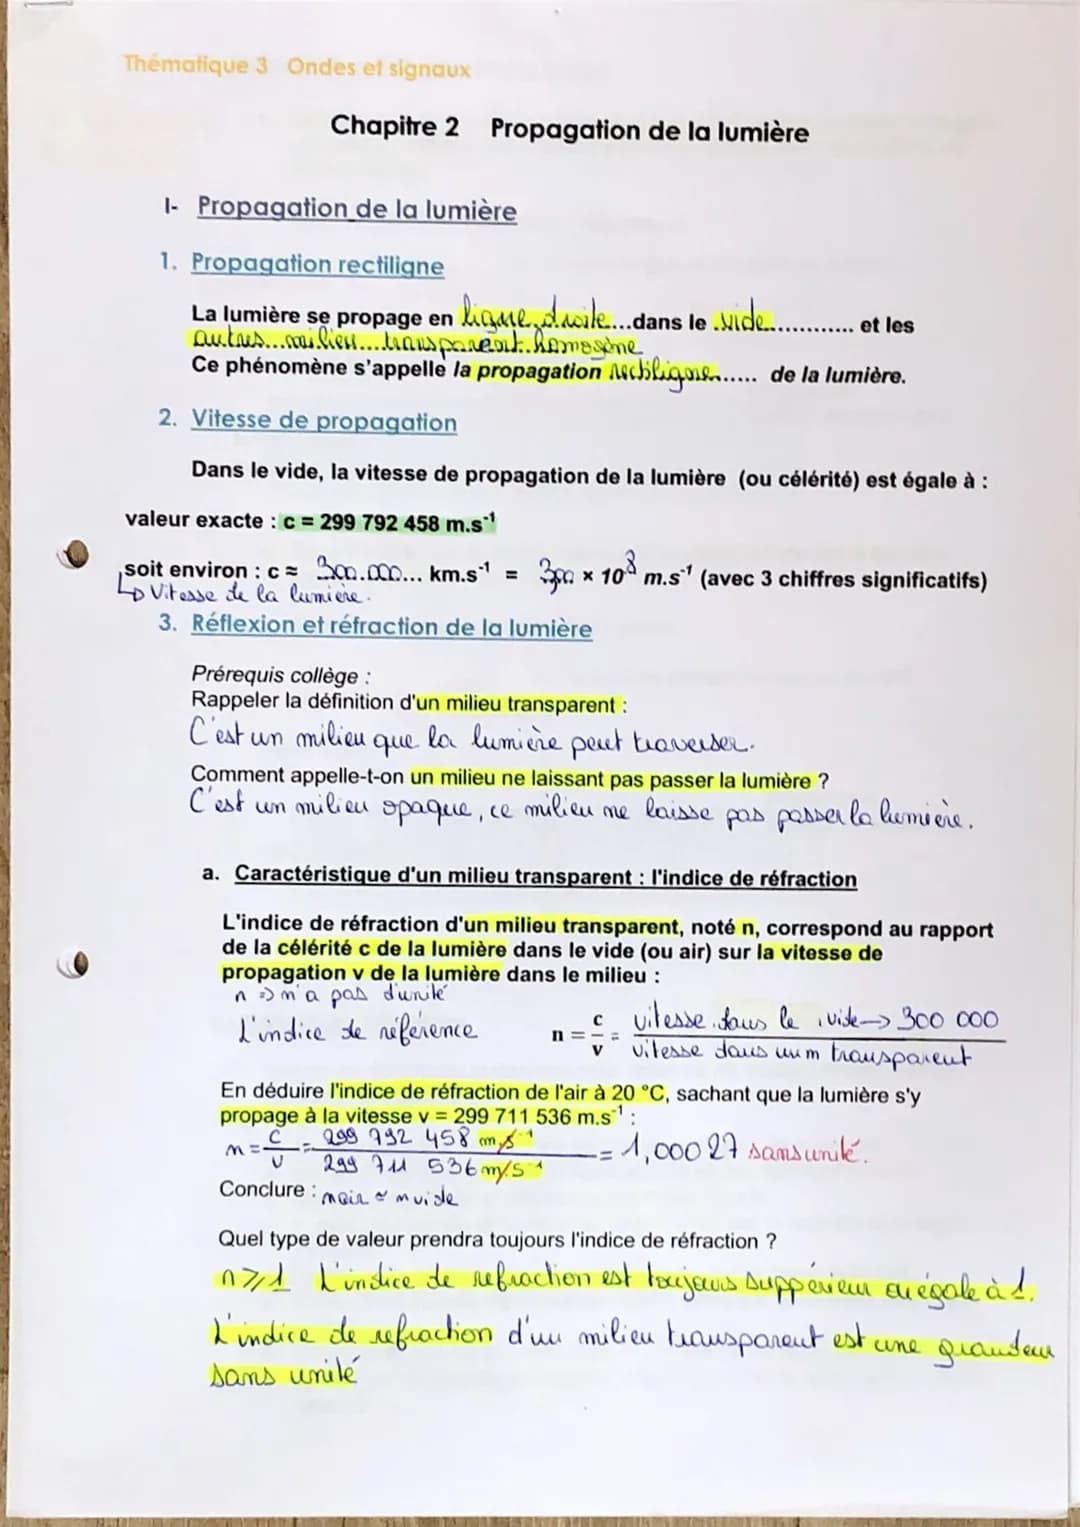 Thématique 3 Ondes et signaux
Chapitre 2 Propagation de la lumière
I- Propagation de la lumière
1. Propagation rectiligne
La lumière se propage en ligne droite...dans le .vide............. et les
autres...milieu...transparent.homogène
Ce phénomène s'appelle la propagation rectiligne...... de la lumière.
2. Vitesse de propagation
Dans le vide, la vitesse de propagation de la lumière (ou célérité) est égale à :
valeur exacte : c = 299 792 458 m.s⁻¹
soit environ : c ≈ 300.000... km.s⁻¹ = 3,00 × 10⁸ m.s⁻¹ (avec 3 chiffres significatifs)
↳ Vitesse de la lumière.
3. Réflexion et réfraction de la lumière
Prérequis collège :
Rappeler la définition d'un milieu transparent :
C'est un milieu que la lumière peut traverser.
Comment appelle-t-on un milieu ne laissant pas passer la lumière ?
C'est un milieu opaque, ce milieu ne laisse pas passer la lumière.
a. Caractéristique d'un milieu transparent : l'indice de réfraction
L'indice de réfraction d'un milieu transparent, noté n, correspond au rapport
de la célérité c de la lumière dans le vide (ou air) sur la vitesse de
propagation v de la lumière dans le milieu :
n => n'a pas d'unité
L'indice de référence n = c/v = vitesse dans le vide → 300 000 / vitesse dans un m transparent
En déduire l'indice de réfraction de l'air à 20 °C, sachant que la lumière s'y
propage à la vitesse v = 299 711 536 m.s⁻¹ :
n = c/v = 299 792 458 m.s⁻¹ / 299 711 536 m/s⁻¹ = 1,00027 sans unité.
Conclure : nair ≈ nvide
Quel type de valeur prendra toujours l'indice de réfraction ?
n⩾1 L'indice de refraction est toujours suppérieur ou égale à 1.
L'indice de refraction d'un milieu transparent est une grandeur
sans unité